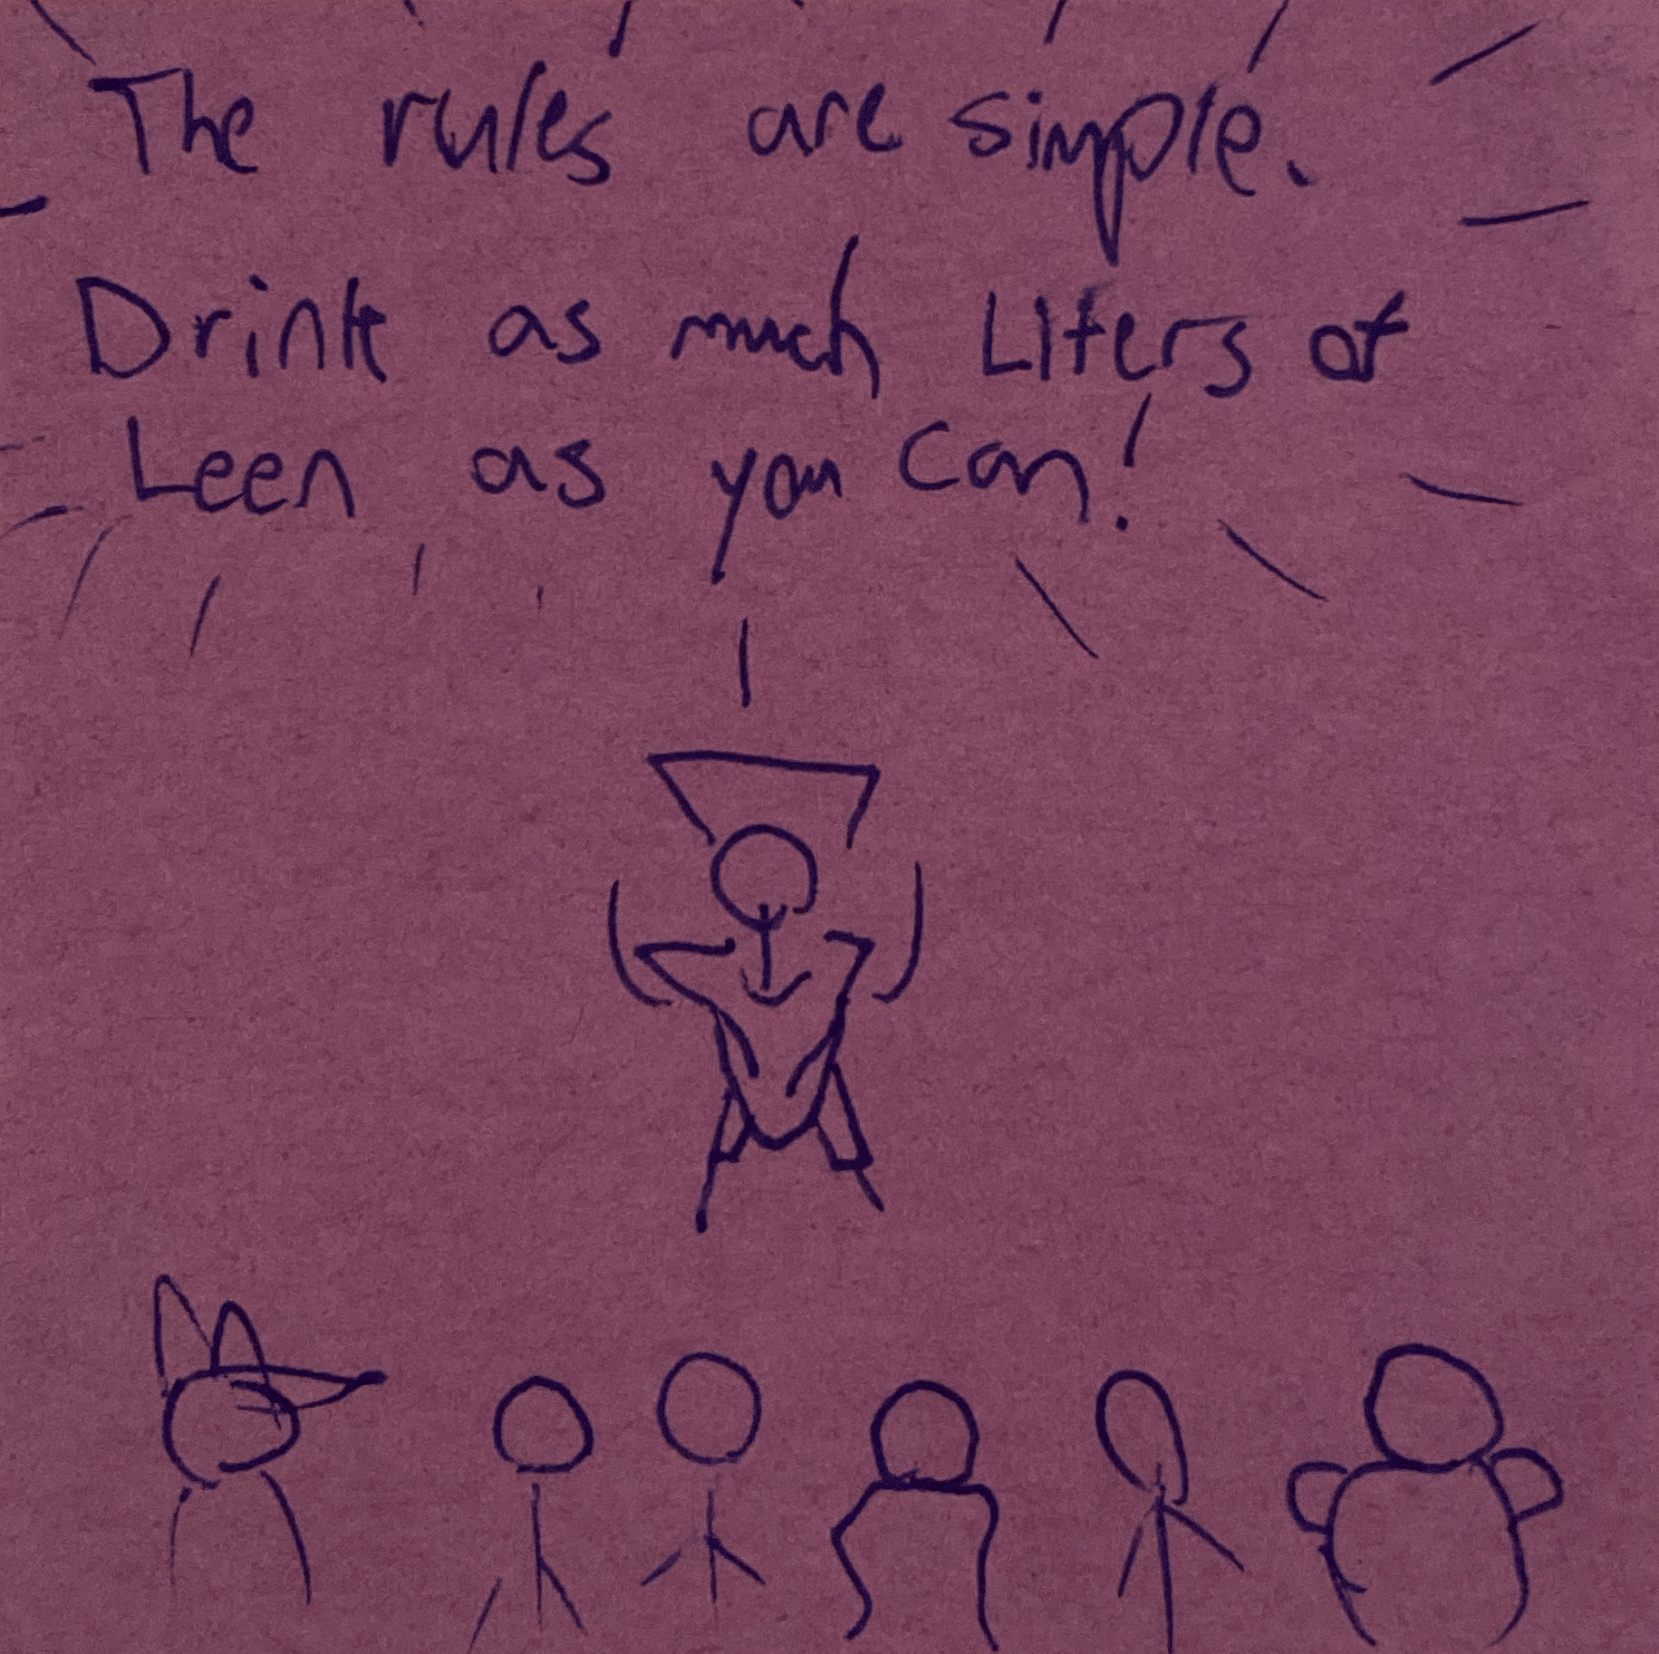 The rules are simple.
Drink as much Liters of
Leen as you can!